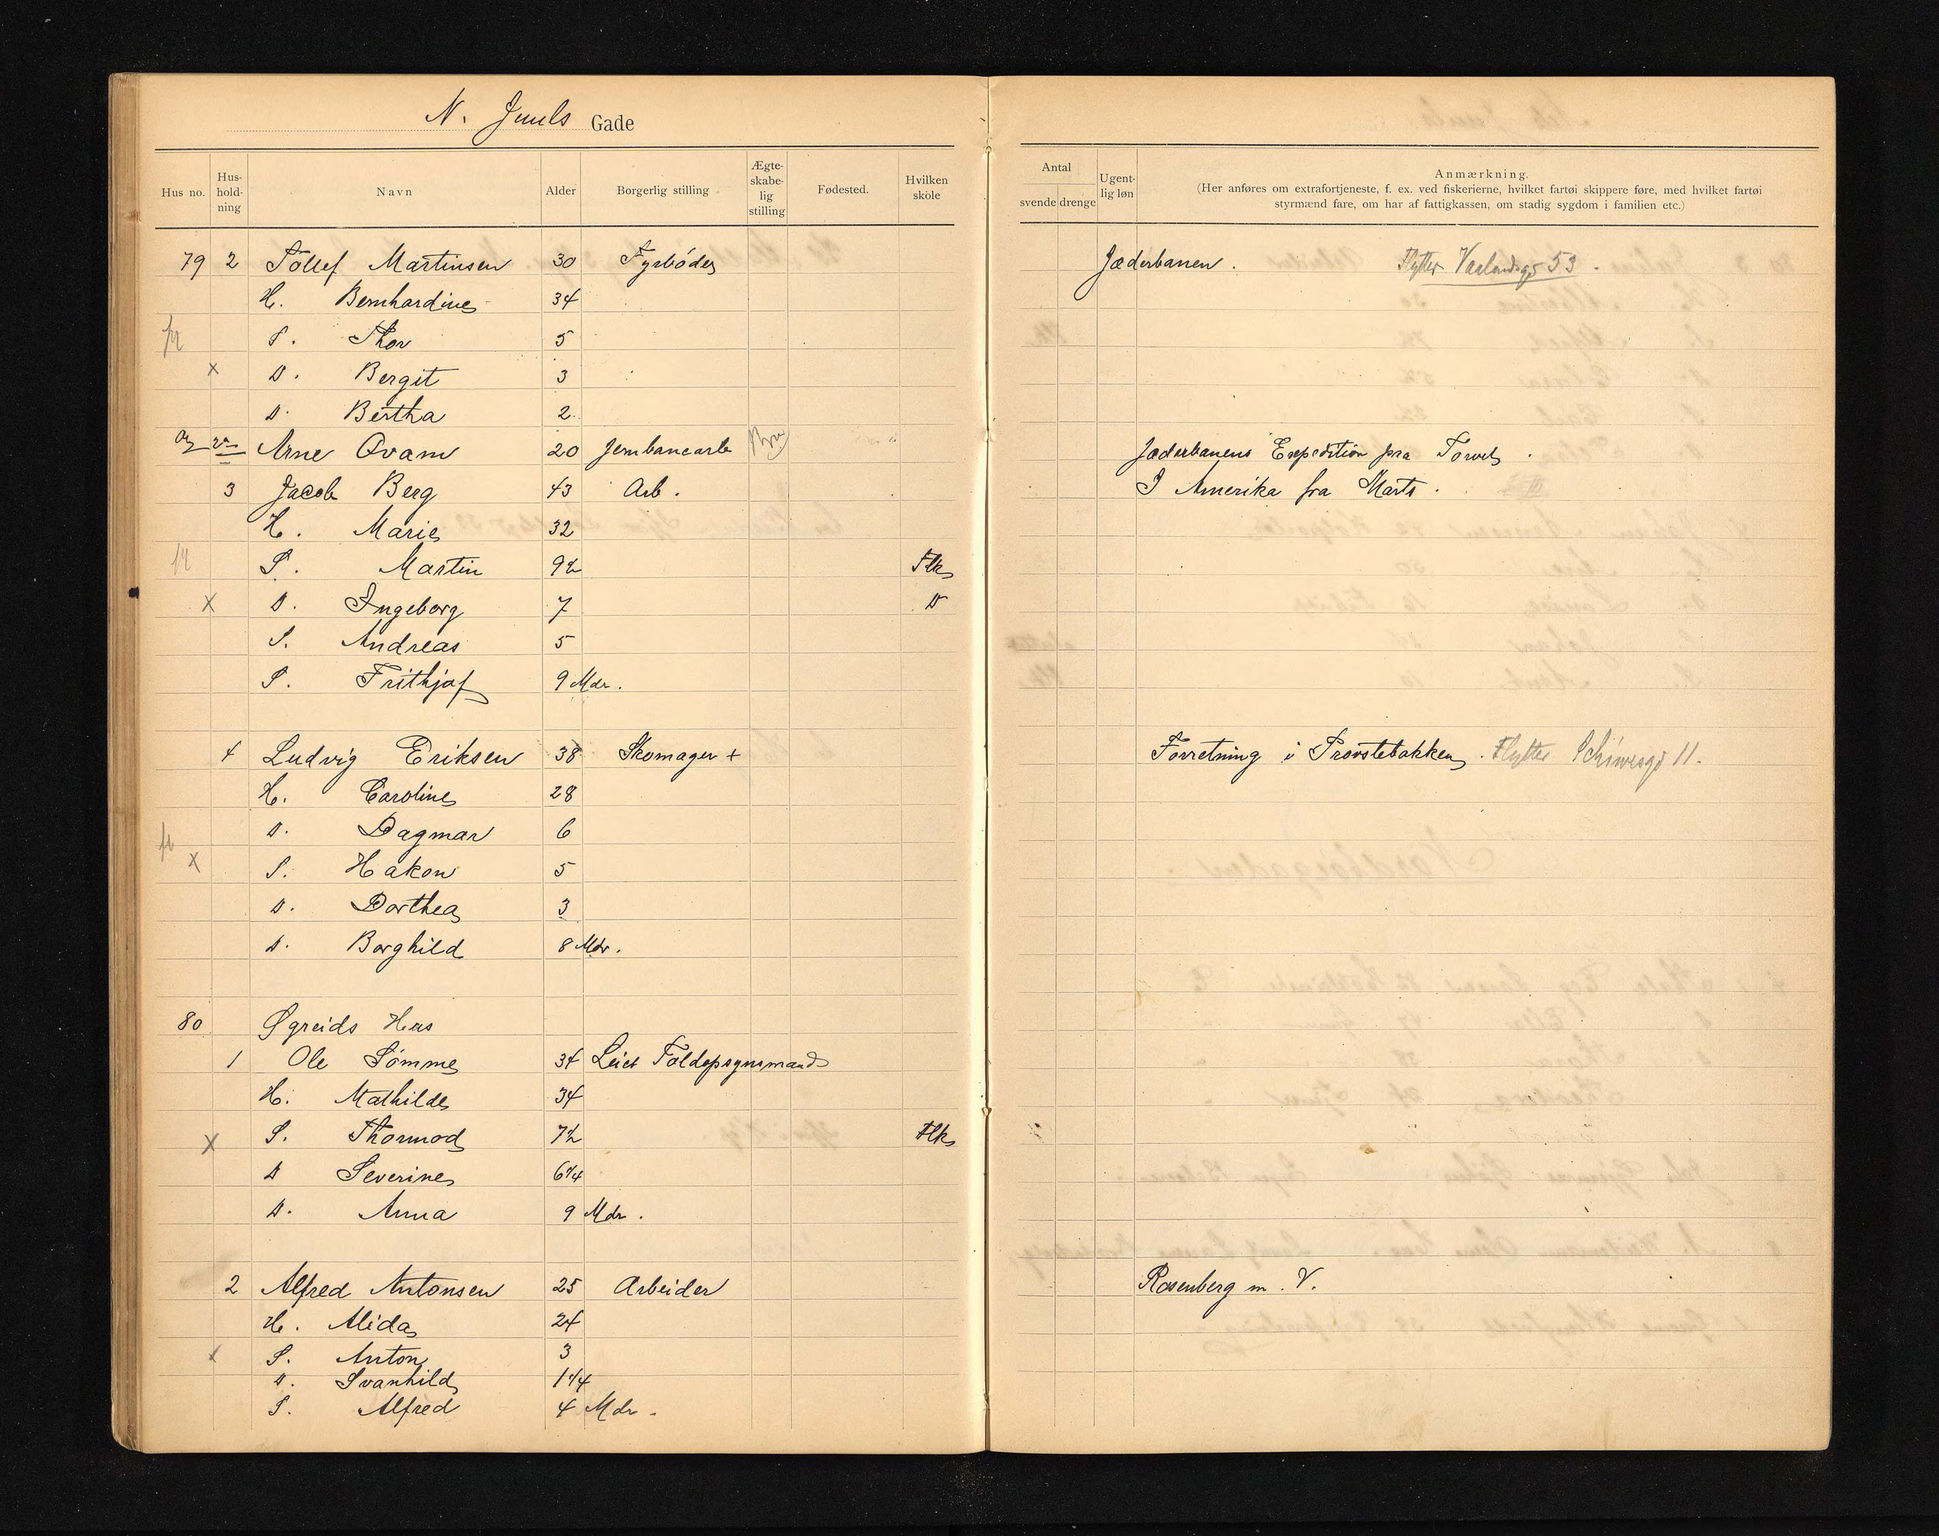 N. Juuls Gade
Hus no. Hus-hold-ning Navn Alder Borgerlig stilling Ægte-skabe-lig stilling Fødested. Hvilken skole
Antal svende drenge Ugent-lig løn Anmærkning.
(Her anføres om extrafortjeneste, f. ex. ved fiskerierne, hvilket fartøi skippere føre, med hvilket fartøi
styrmænd fare, om har af fattigkassen, om stadig sygdom i familien etc.)
79 2 Tollef Martinsen 30 Fyrbøder Jæderbanen. Flytter 53.
H. Bernhardine 34
S. Thor 5
x D. Bergit 3
D. Bertha 2
Arne Qvam 20 Jernbanearb Jæderbanens Expedition fra Torvet.
3 Jacob Berg 43 Arb. I Amerika fra Marts.
H. Marie 32
S. Martin 9½ Flk
x D. Ingeborg 7 D
S. Andreas 5
S. Frithjof 9 Mdr.
4 Ludvig Eriksen 38 Skomager + Forretning i Provstebakken. Flytter Schiwesgd 11.
H. Caroline 28
D. Dagmar 6
x S. Hakon 5
D. Dorthea 3
D. Borghild 8 Mdr.
80 Øgreids Hus
1 Ole Sømme 34 Leier Toldopsynsmand
H. Mathilde 34
x S. Thormod 7½ Flk
D Severine 6¼
D. Anna 9 Mdr.
2 Alfred Antonsen 25 Arbeider Rosenberg m. V.
H. Alida 24
x S. Anton 3
D. Svanhild 1¼
S. Alfred 4 Mdr.